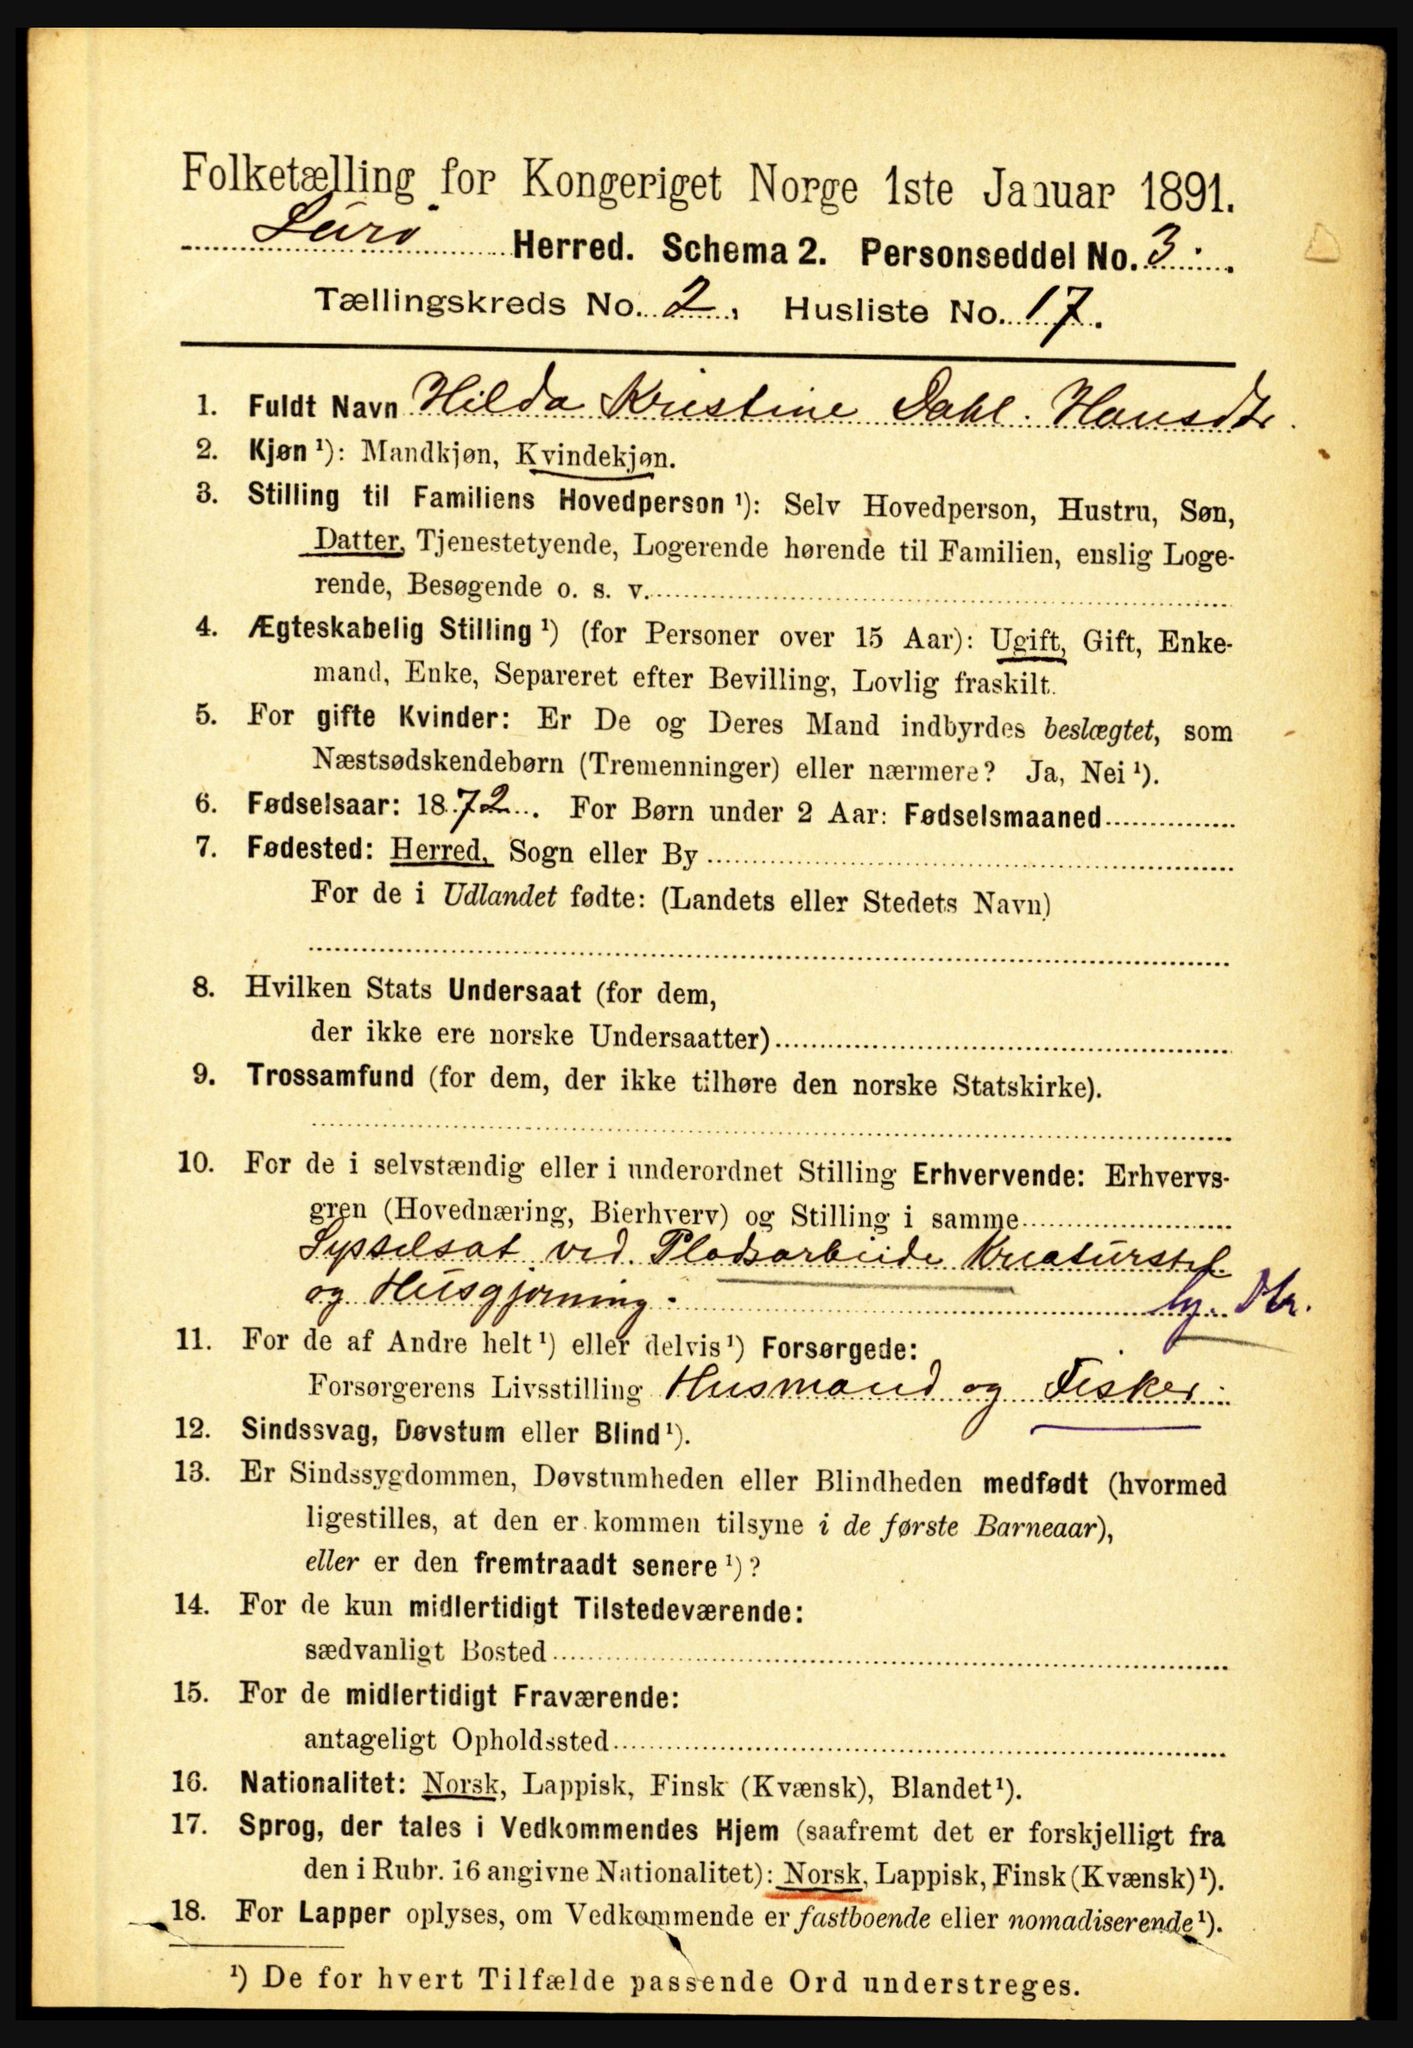 Folketælling for Kongeriget Norge 1ste Januar 1891.
Lurø Herred. Schema 2. Personseddel No. 3.
Tællingskreds No. 2, Husliste No. 17.
1. Fuldt Navn Hilda Kristine Dahl. Hansdtr.
2. Kjøn ¹): Mandkjøn, Kvindekjøn.
3. Stilling til Familiens Hovedperson ¹): Selv Hovedperson, Hustru, Søn,
Datter, Tjenestetyende, Logerende hørende til Familien, enslig Loge-
rende, Besøgende o. s. v.
4. Ægteskabelig Stilling ¹) (for Personer over 15 Aar): Ugift, Gift, Enke-
mand, Enke, Separeret efter Bevilling, Lovlig fraskilt.
5. For gifte Kvinder: Er De og Deres Mand indbyrdes beslægtet, som
Næstsødskendebørn (Tremenninger) eller nærmere? Ja, Nei ¹).
6. Fødselsaar: 1872. For Børn under 2 Aar: Fødselsmaaned
7. Fødested: Herred, Sogn eller By
For de i Udlandet fødte: (Landets eller Stedets Navn)
8. Hvilken Stats Undersaat (for dem,
der ikke ere norske Undersaatter)
9. Trossamfund (for dem, der ikke tilhøre den norske Statskirke).
10. For de i selvstændig eller i underordnet Stilling Erhvervende: Erhvervs-
gren (Hovednæring, Bierhverv) og Stilling i samme
Sysselsat ved Pladsarbeide Kreaturstel
og Husgjørning. hj. Dtr.
11. For de af Andre helt ¹) eller delvis ¹) Forsørgede:
Forsørgerens Livsstilling Husmand og Fisker.
12. Sindssvag, Døvstum eller Blind ¹).
13. Er Sindssygdommen, Døvstumheden eller Blindheden medfødt (hvormed
ligestilles, at den er kommen tilsyne i de første Barneaar),
eller er den fremtraadt senere ¹)?
14. For de kun midlertidigt Tilstedeværende:
sædvanligt Bosted
15. For de midlertidigt Fraværende:
antageligt Opholdssted
16. Nationalitet: Norsk, Lappisk, Finsk (Kvænsk), Blandet ¹).
17. Sprog, der tales i Vedkommendes Hjem (saafremt det er forskjelligt fra
den i Rubr. 16 angivne Nationalitet): Norsk, Lappisk, Finsk (Kvænsk) ¹).
18. For Lapper oplyses, om Vedkommende er fastboende eller nomadiserende ¹).
¹) De for hvert Tilfælde passende Ord understreges.